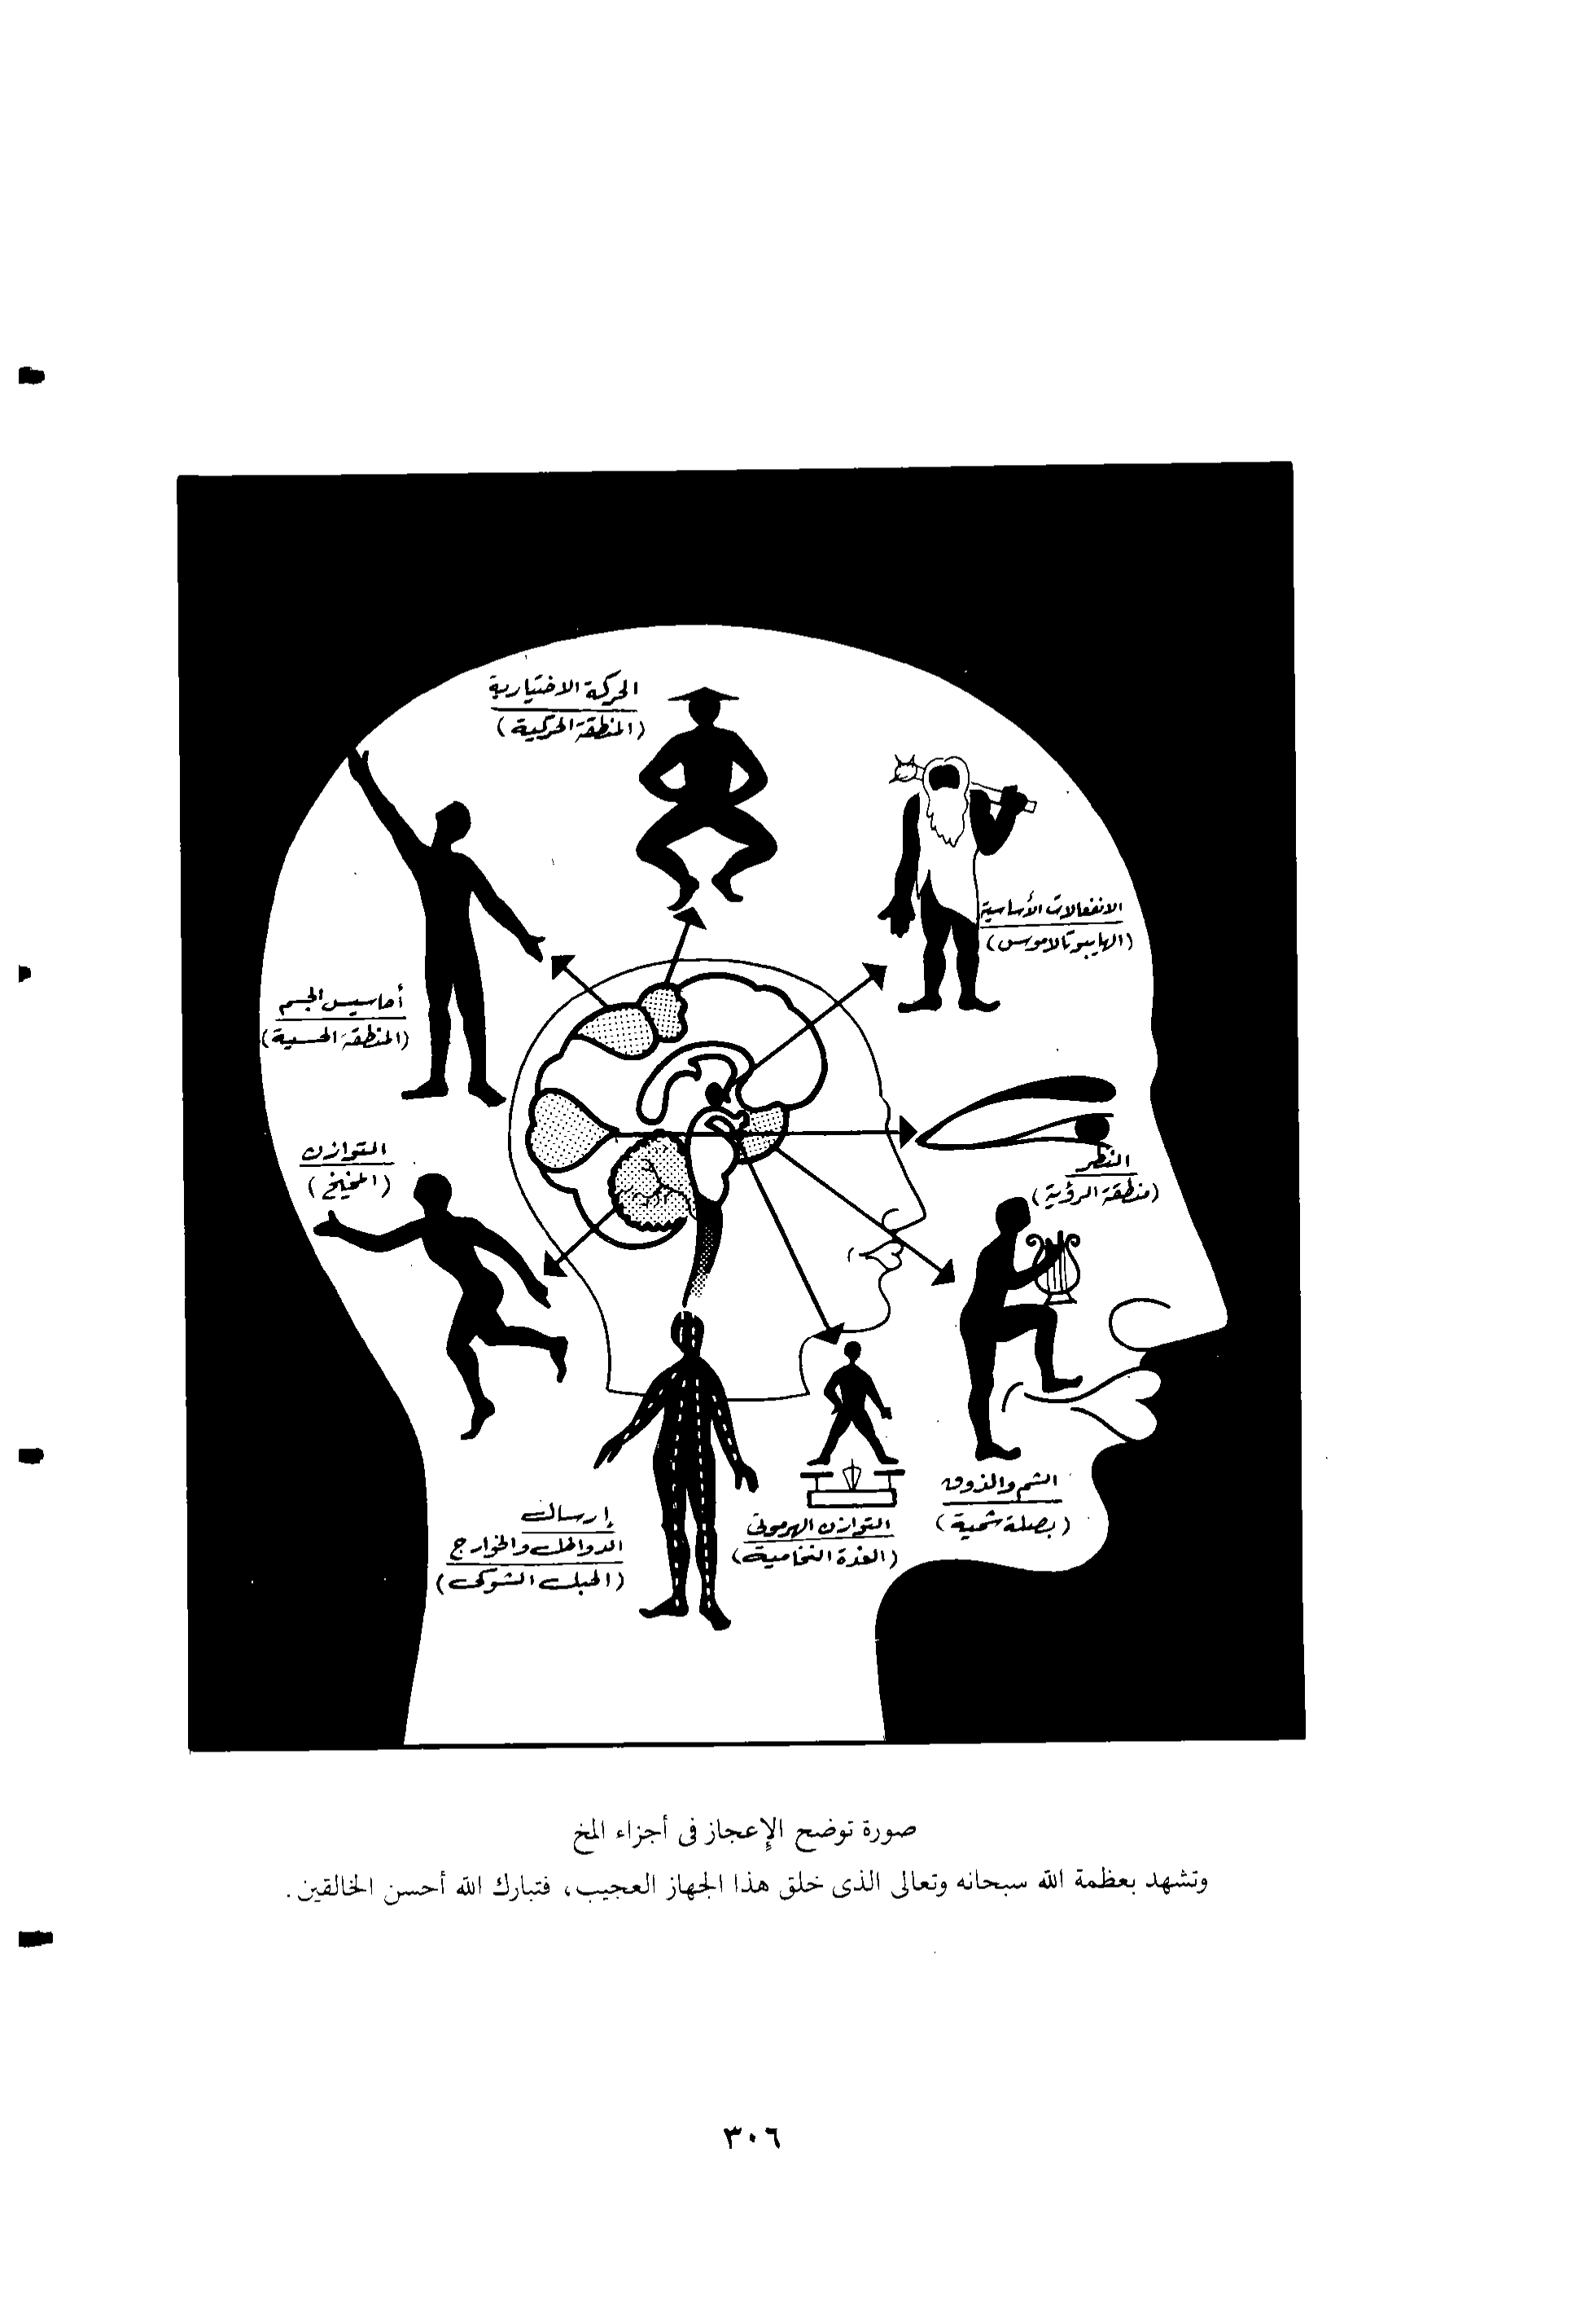 الحركة الاختيارية
(المنطقة الحركية)
الانفعالات الأساسية
(الهايبوتالاموس)
أحاسيس الجسم
(المنطقة الحسية)
النظر
(منطقة الرؤية)
التوازن
(المخيخ)
الشم والذوق
(بصلة شمية)
التوازن الهرمونى
(الغدة النخامية)
إرسال
الدواخل والخوارج
(الحبل الشوكى)
صورة توضح الإعجاز فى أجزاء المخ
وتشهد بعظمة الله سبحانه وتعالى الذى خلق هذا الجهاز العجيب، فتبارك الله أحسن الخالقين.
٣٠٦